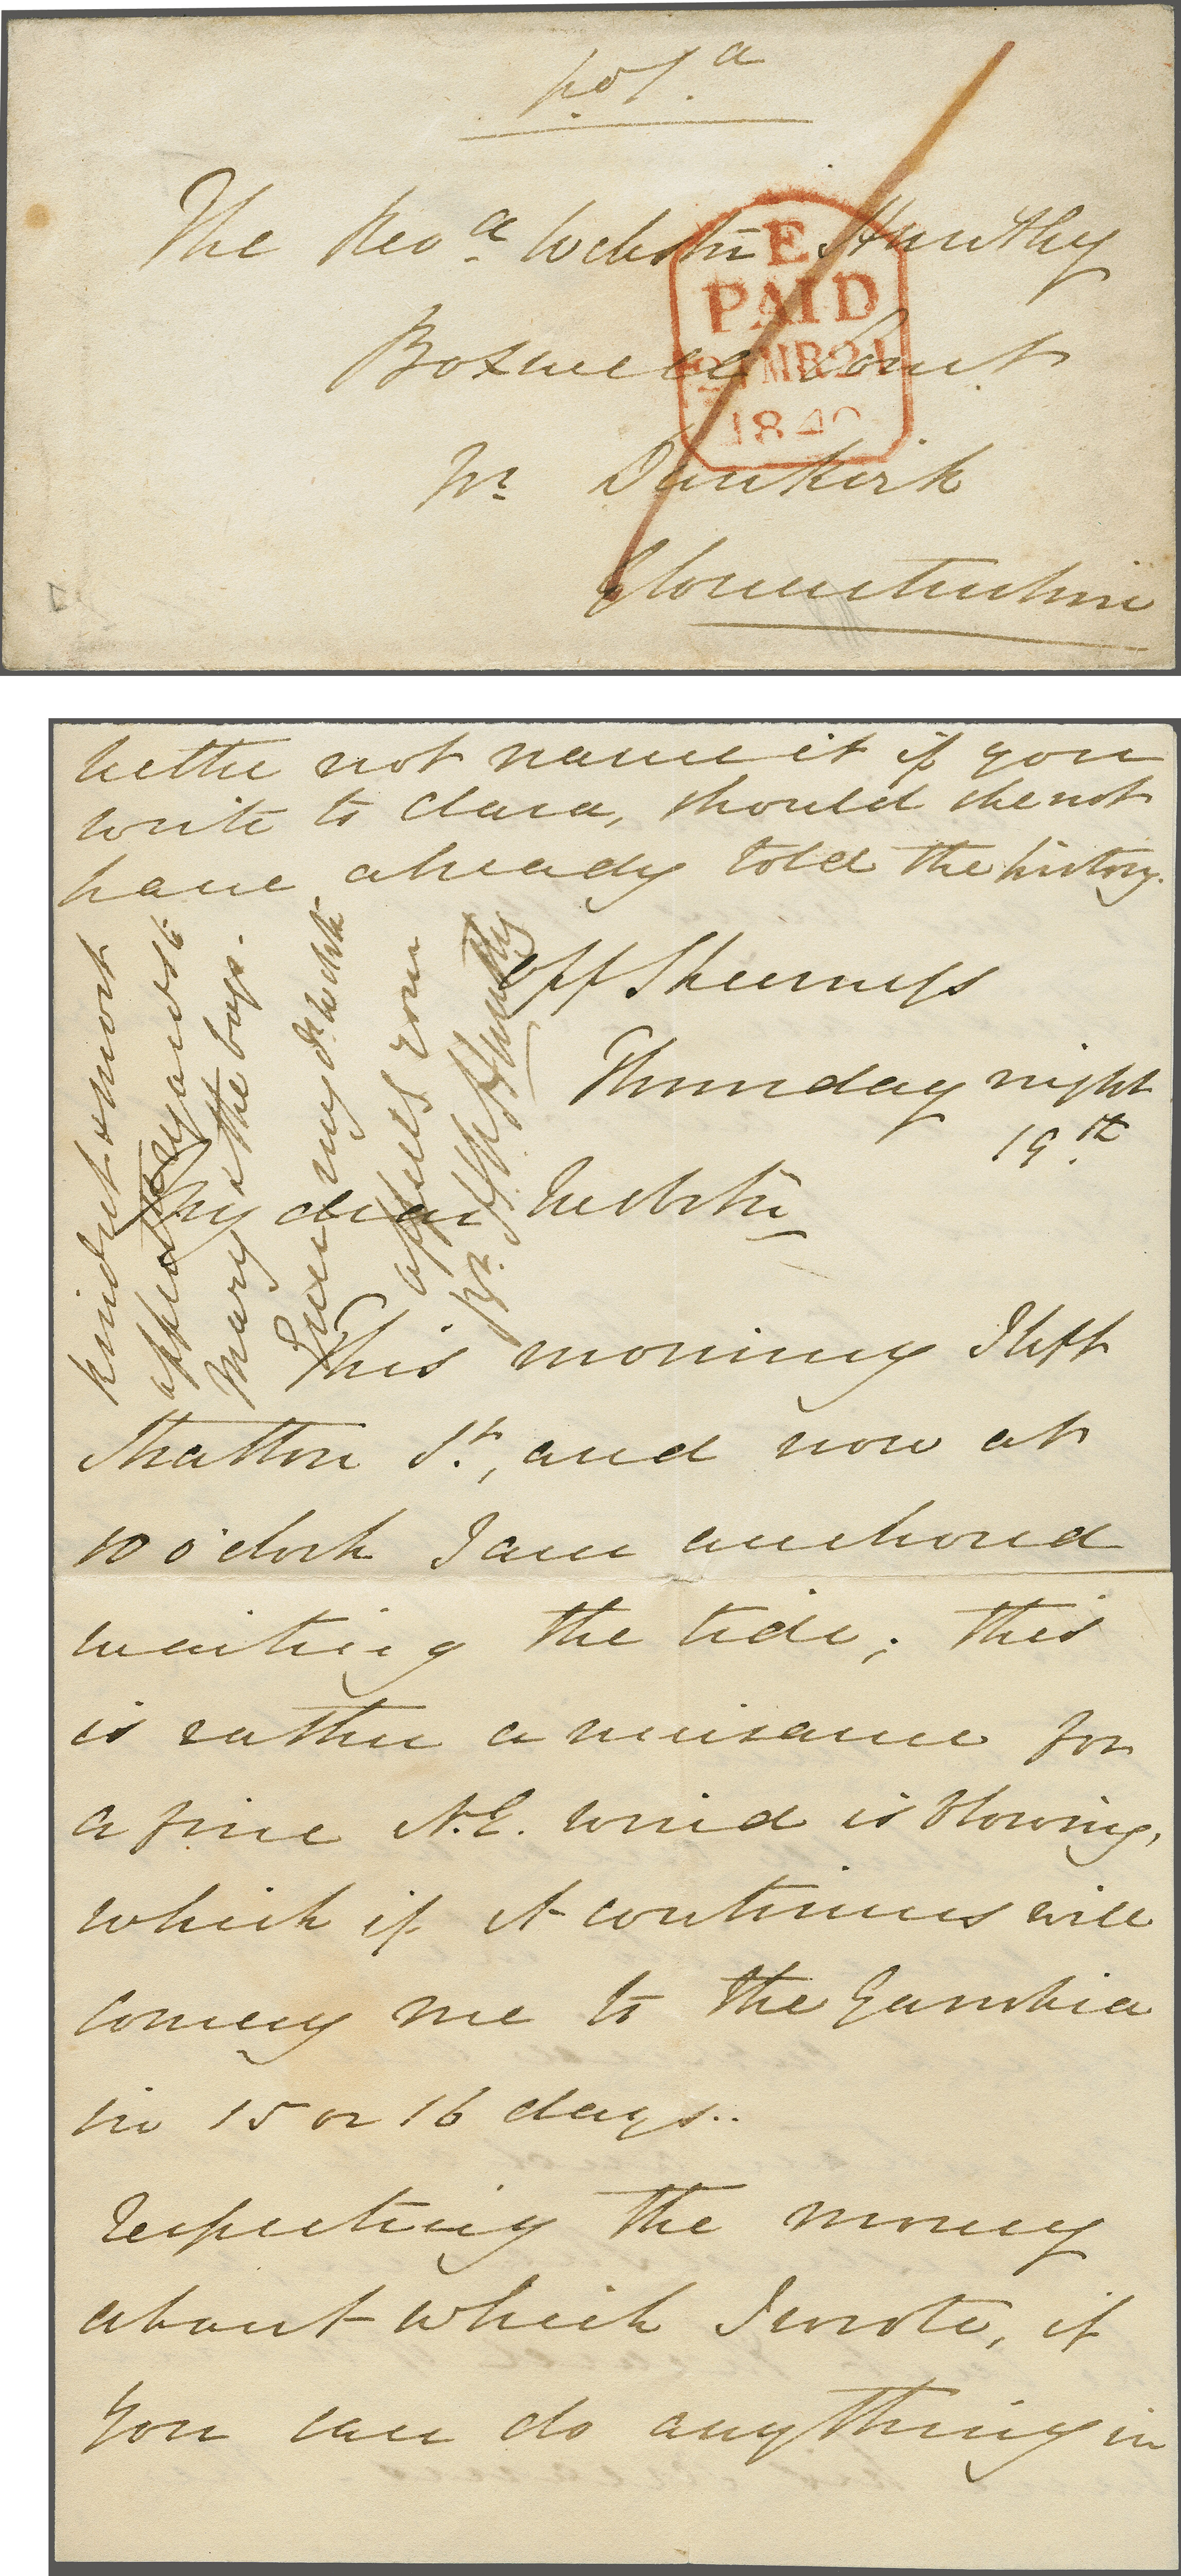 p.d.
The Revd. Webster Huntley
Boxwell Court
Nr. Dunkirk
Gloucestershire
E
PAID
21 MR 21
1840
better not name it if you
write to Clara, should she not
have already told the history.
kindest & most
affectionate
Mary & the boys.
Ever my dr. Webster
affect
Br. H. Huntley
Off Sheerness
Thursday night
19th
My dear Webster
This morning I left
Stratton St., and now at
10 o'clock I am anchored
waiting the tide; this
is rather a nuisance for
a fine N.E. wind is blowing,
which if it continues will
convey me to the Gambia
in 15 or 16 days..
Respecting the money
about which I wrote, if
you can do anything in